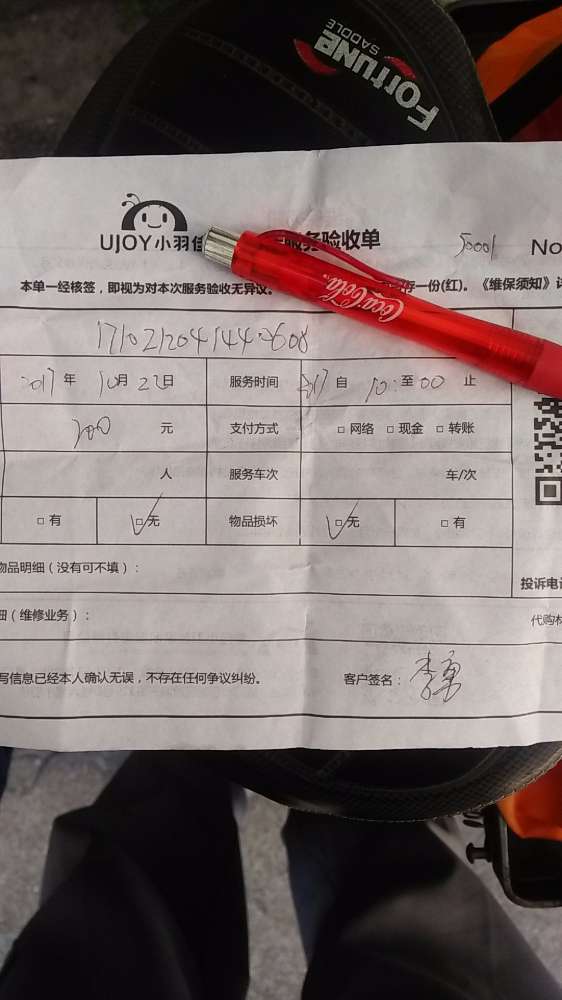 FORTUNE
SADDLE
UJOY小羽佳 服务验收单 50001 No
本单一经核签，即视为对本次服务验收无异议。 存一份(红)。《维保须知》
Coca-Cola
2017年 10月 22日 服务时间 2017 自 10: 至 00 止
200 元 支付方式 □ 网络 □ 现金 □ 转账
人 服务车次 车/次
□ 有 □ 无 物品损坏 □ 无 □ 有
物品明细（没有可不填）：
投诉电
细（维修业务）：
代购
写信息已经本人确认无误，不存在任何争议纠纷。 客户签名：李勇